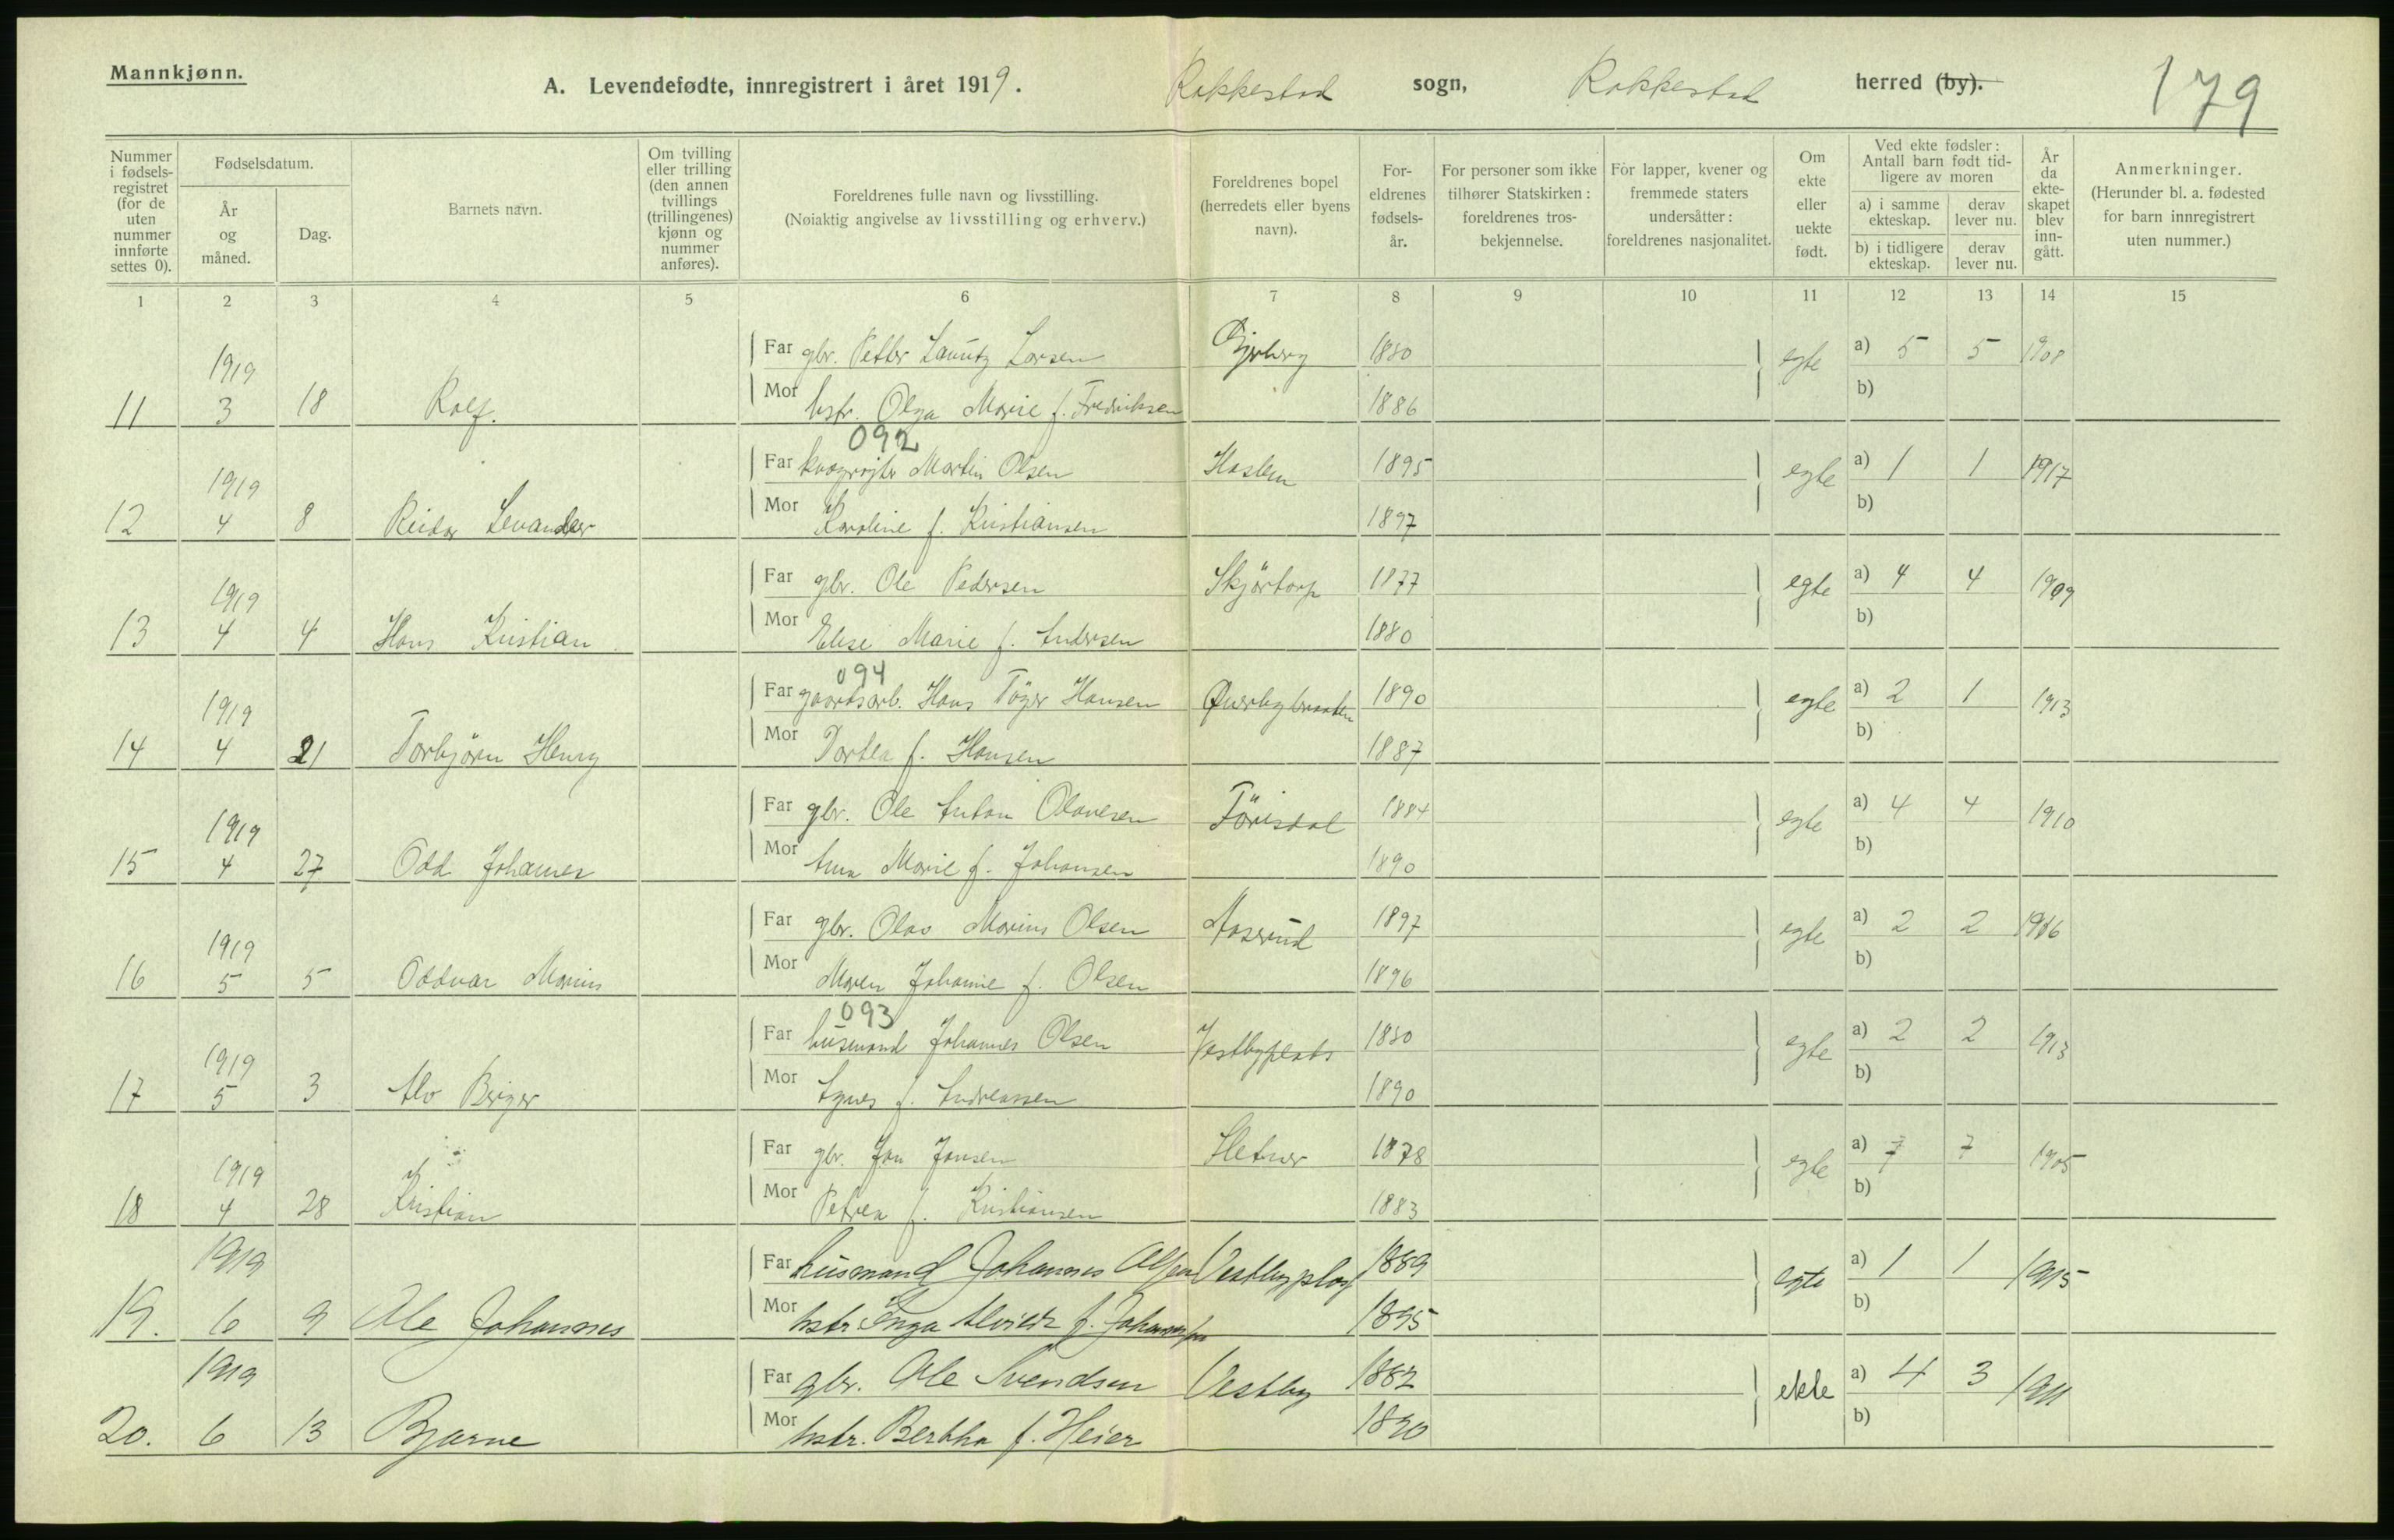 Mannkjønn.
A. Levendefødte, innregistrert i året 1919. Rakkestad sogn, Rakkestad herred (by).
179
Nummer i fødselsregistret (for de uten nummer innførte settes 0).
Fødselsdatum.
År og måned.
Dag.
Barnets navn.
Om tvilling eller trilling (den annen tvillings (trillingenes) kjønn og nummer anføres).
Foreldrenes fulle navn og livsstilling.
(Nøiaktig angivelse av livsstilling og erhverv.)
Foreldrenes bopel (herredets eller byens navn).
Foreldrenes fødselsår.
For personer som ikke tilhører Statskirken: foreldrenes trosbekjennelse.
For lapper, kvener og fremmede staters undersåtter: foreldrenes nasjonalitet.
Om ekte eller uekte født.
Ved ekte fødsler: Antall barn født tidligere av moren
a) i samme ekteskap.
derav lever nu.
b) i tidligere ekteskap.
derav lever nu.
År da ekteskapet blev inngått.
Anmerkninger.
(Herunder bl. a. fødested for barn innregistrert uten nummer.)
1 2 3 4 5 6 7 8 9 10 11 12 13 14 15
Far gbr. Petter Lauritz Larsen 1880 egte a) 5 5 1908
11 1919 3 18 Rolf. Mor hstr. Olga Marie f. Fredriksen 1886 b)
092
Far Martin Olsen Haslem 1895 egte a) 1 1 1917
12 1919 4 8 Reidar Levander Mor Karoline f. Kristiansen 1897 b)
Far gbr. Ole Pedersen Skjørtorp 1877 egte a) 4 4 1909
13 1919 4 4 Hans Kristian Mor Elise Marie f. Andersen 1880 b)
094
Far gaardsarb. Hans Tøger Hansen Øverbybraaten 1890 egte a) 2 1 1913
14 1919 4 21 Torbjørn Henry Mor Dortea f. Hansen 1887 b)
Far gbr. Ole Anton Olavesen Førisdal 1884 egte a) 4 4 1910
15 1919 4 27 Odd Johannes Mor Anna Marie f. Johansen 1890 b)
Far gbr. Olav Marius Olsen Aaserud 1897 egte a) 2 2 1916
16 1919 5 5 Oddvar Marius Mor Maren Johanne f. Olsen 1896 b)
093
Far husmand Johannes Olsen Vestbyplads 1880 egte a) 2 2 1913
17 1919 5 3 Alv Birger Mor Agnes f. Andreassen 1890 b)
Far gbr. Jon Jonsen 1878 egte a) 7 7 1905
18 1919 4 28 Kristian Mor Petrea f. Kristiansen 1883 b)
Far husmand Johannes Olsen Vestbyplads 1889 egte a) 1 1 1915
19. 1919 6 9 Ole Johannes Mor hstr. Inga f. Johannsen 1895 b)
Far gbr. Ole Svendsen Vestby 1882 ekte a) 4 3 1911
20. 1919 6 13 Bjarne Mor hstr. Bertha f. Heier 1890 b)